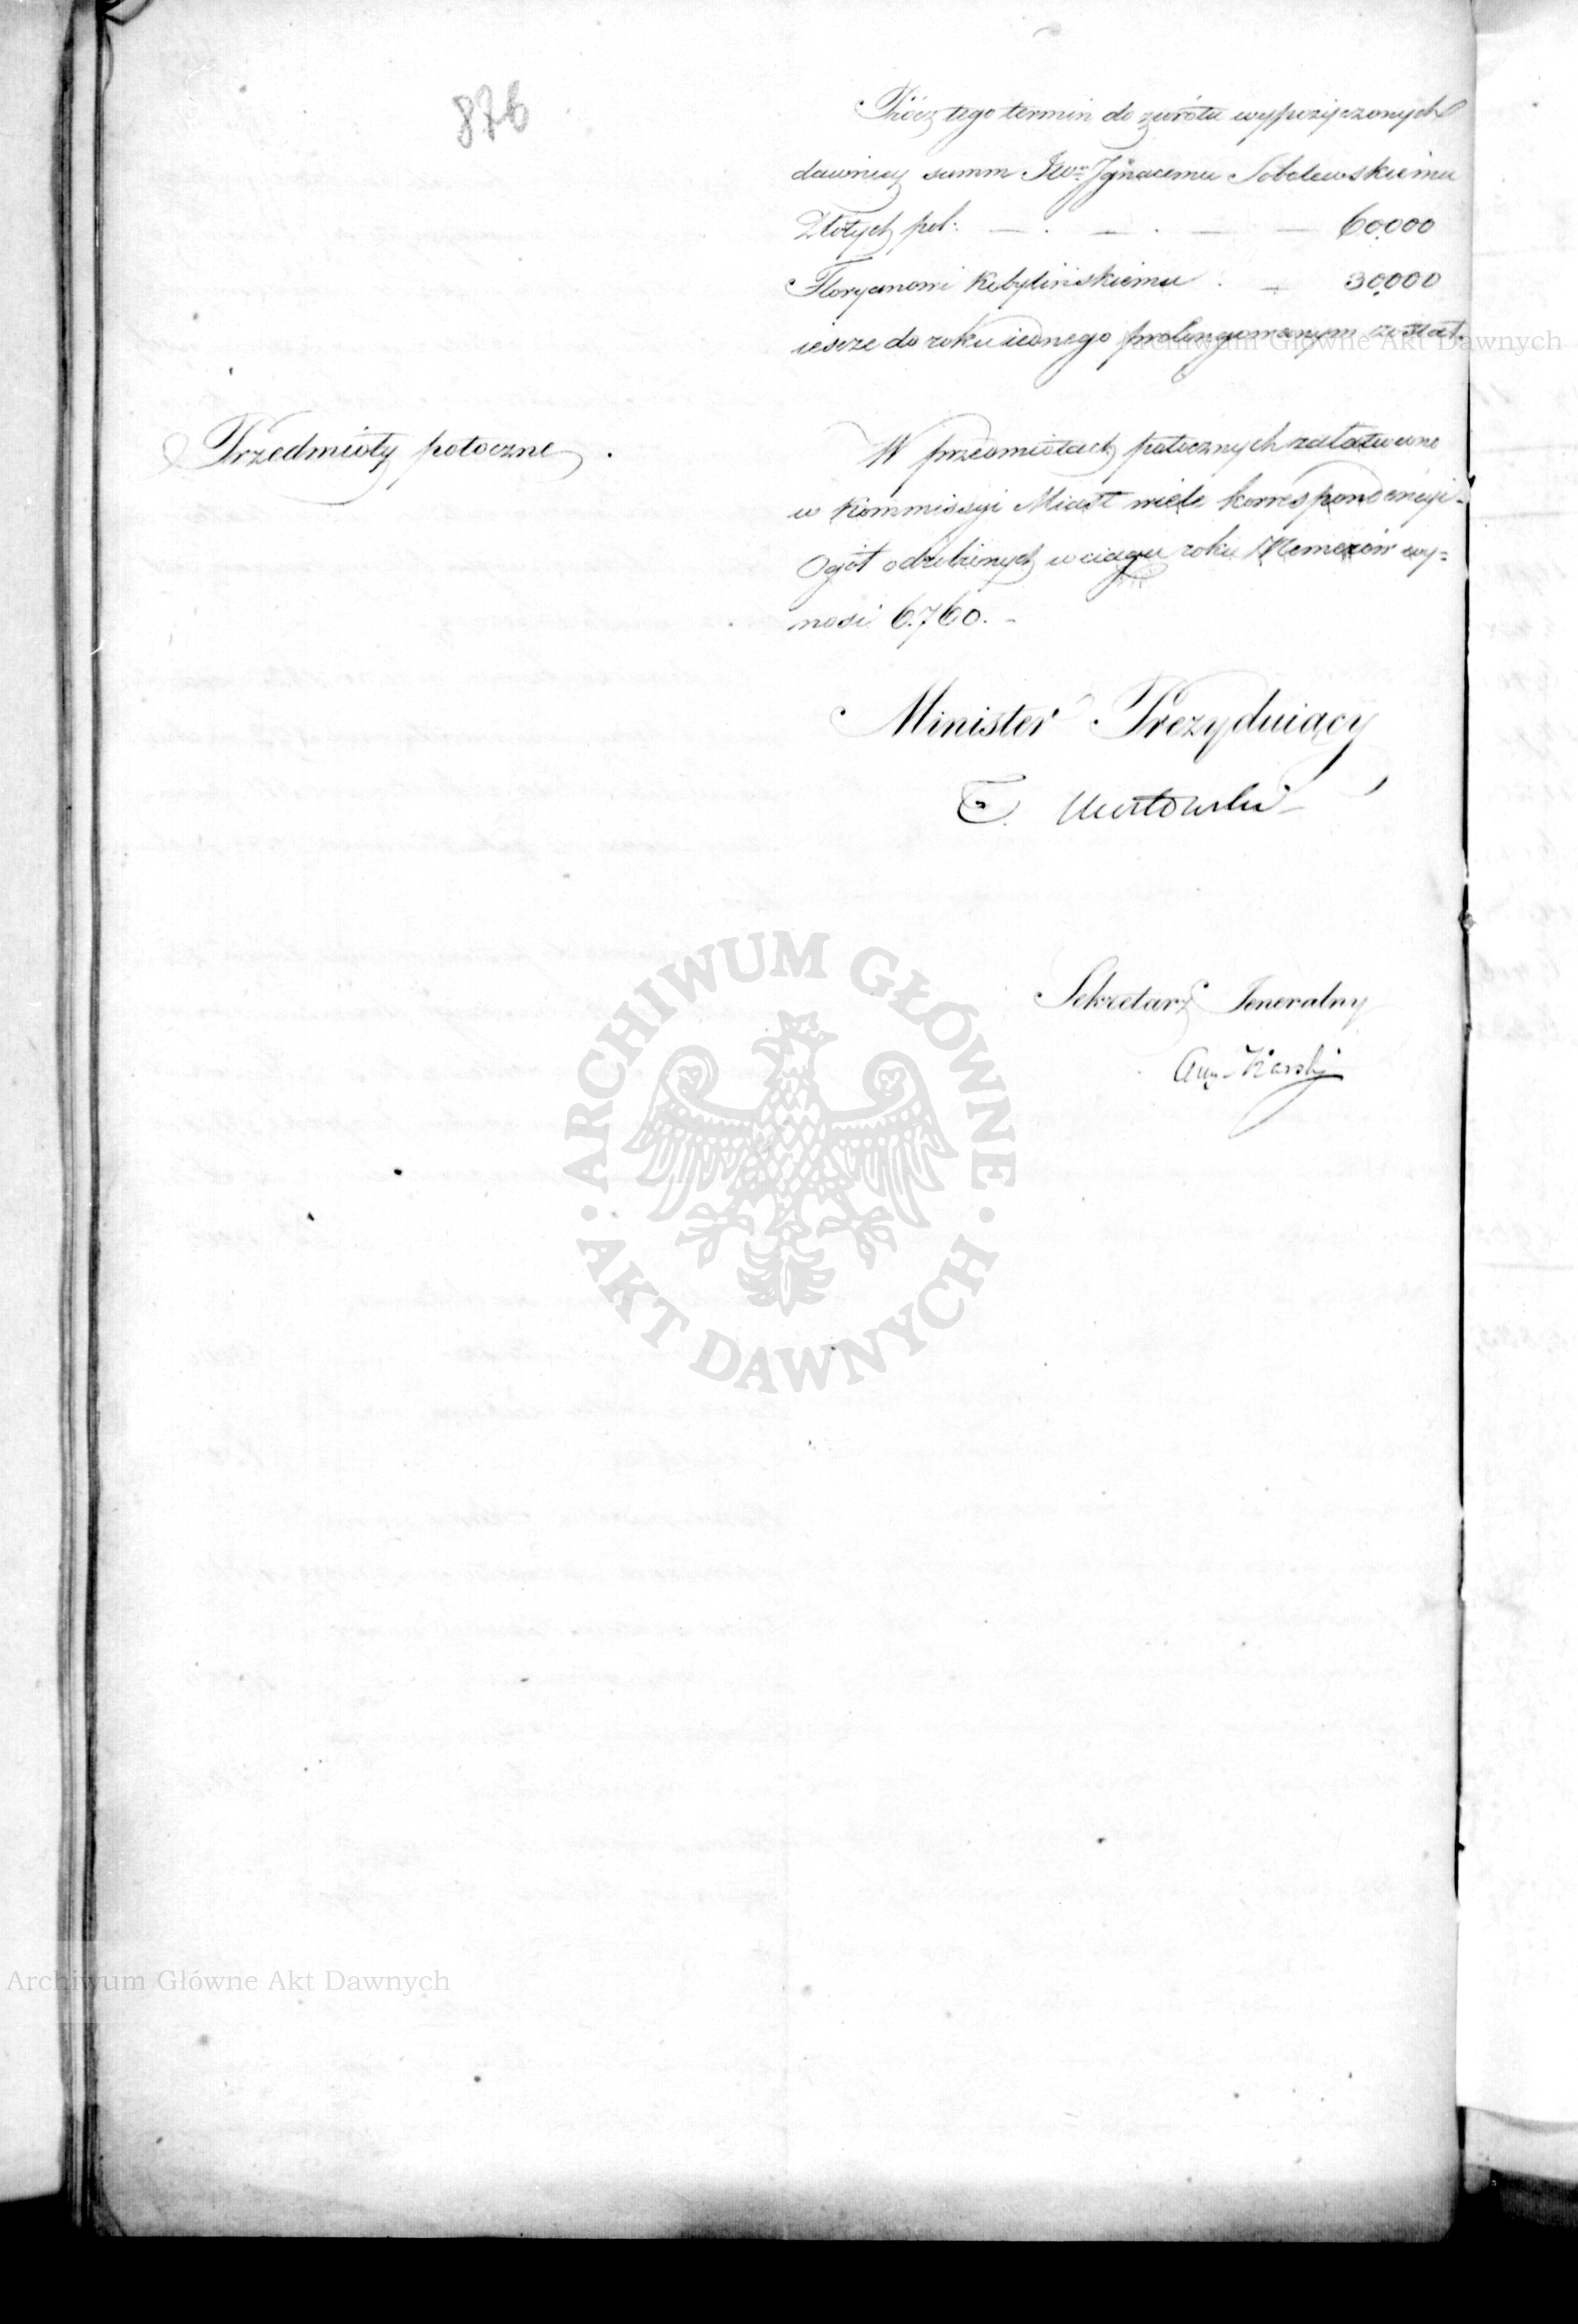 876
Prócz tego termin do zwrotu wypożyczonych
dawniey summ JW. Ignacemu Sobolewskiemu
Złotych pol: — . — . — — 60,000
Floryanowi Kobylińskiemu . — 30,000
iescze do roku iednego prolongowanym został.
Archiwum Główne Akt Dawnych
Przedmioty potoczne .
W przedmiotach potocznych załatwiono
w Kommissyi Miast wiele korrespondencyi.
Ogół odrobionych w ciągu roku Numerów wy=
nosi 6.760. –
Minister Prezyduiący
T. Mostowski
Sekretarz Jeneralny
Aug. Karski
ARCHIWUM GŁÓWNE AKT DAWNYCH
Archiwum Główne Akt Dawnych